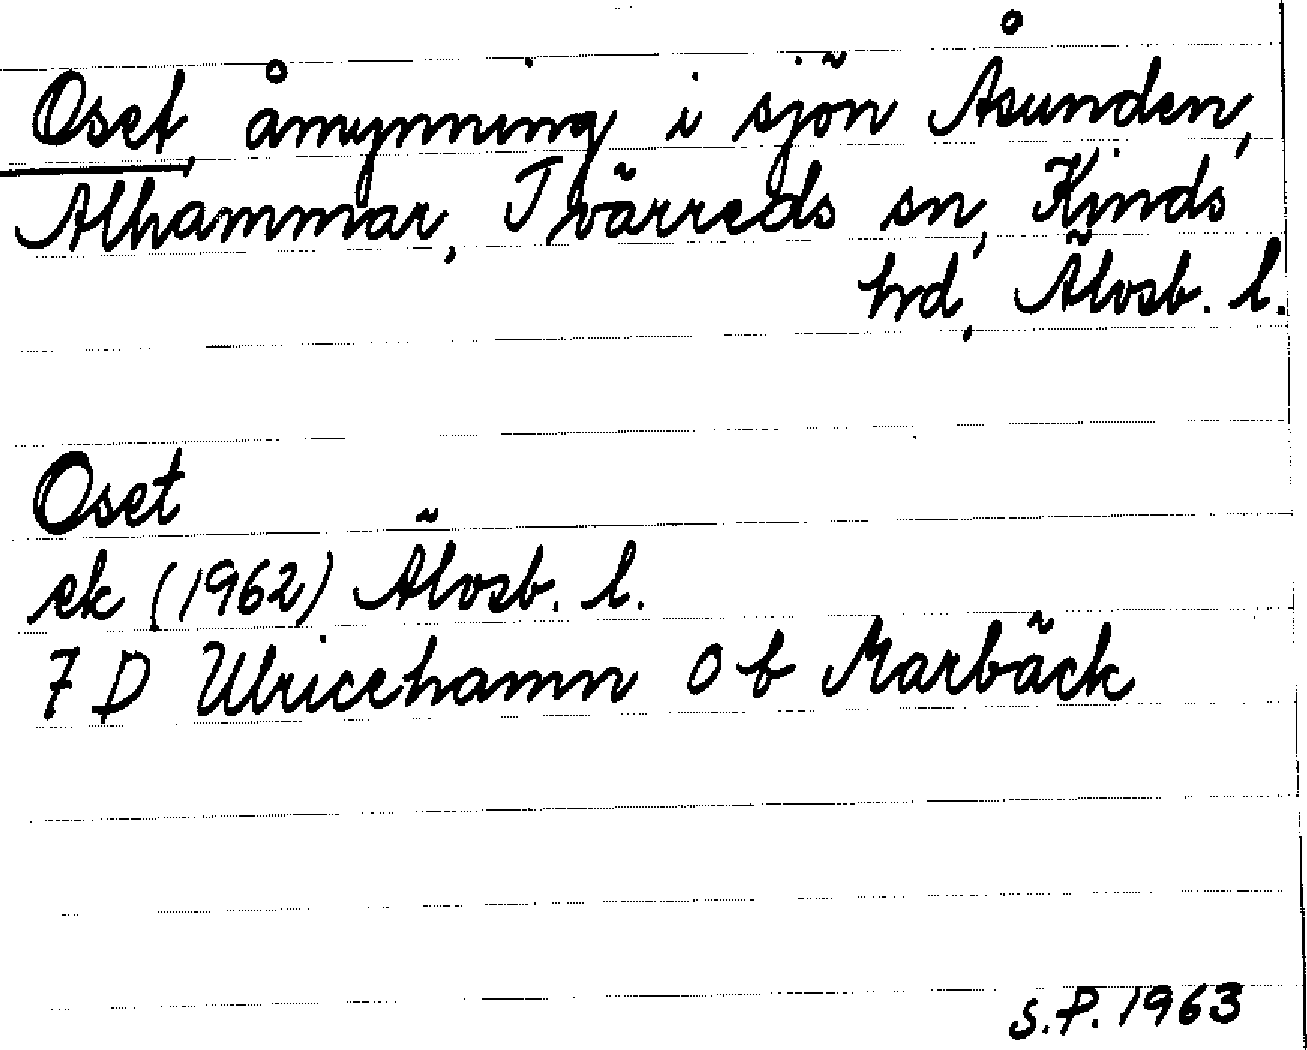 Oset, åmynning i sjön Åsunden,
Alhammar, Tvärreds sn, Kinds
hrd, Älvsb. l.
Oset
ek (1962) Älvsb. l.
7 D Ulricehamn 0 b Marbäck
S.P. 1963